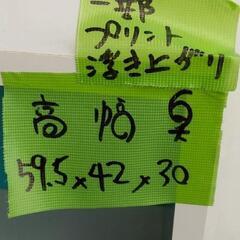 一部
プリント
浮き上ガリ
高 幅 奥
59.5×42×30